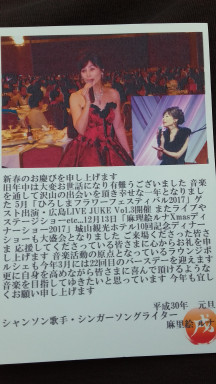 新春のお慶びを申し上げます
旧年中は大変お世話になり有難うございました 音楽
を通して沢山の出会いを頂き幸せな一年となりまし
た 5月「ひろしまフラワーフェスティバル2017」ゲ
スト出演・広島LIVE JUKE Vol.3開催 またライブや
ステージショーetc…12月13日「麻里絵ルナXmasディ
ナーショー2017」城山観光ホテル10回記念ディナー
ショーも大盛会となりました ご来場くださった皆さ
ま 応援してくださっている皆さまに心からお礼を申
し上げます 音楽活動の原点となっているラウンジポ
ルシェも今年3月には22回目のバースデーを迎えます
更に自身を高めながら皆さまに喜んで頂けるような
音楽を目指してゆきたいと思っています 今年も宜し
くお願い申し上げます
平成30年 元旦
シャンソン歌手・シンガーソングライター
麻里絵 ルナ